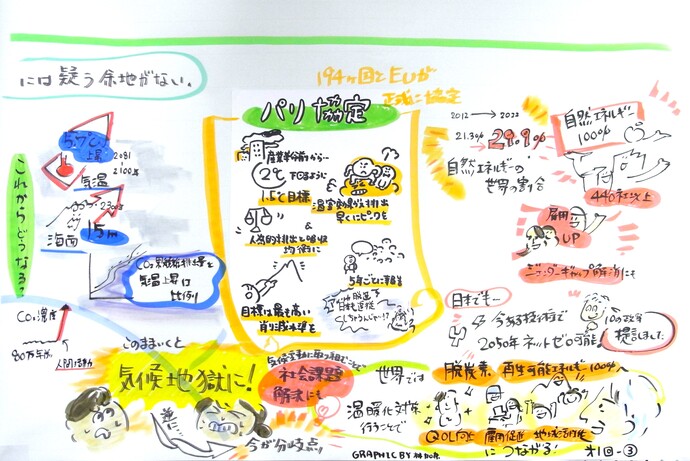 には疑う余地がない。
これからどうなる?
上昇
2081
2100年
気温
2300年
15m
海面
CO₂累積総排出量と
気温上昇は
比例
CO₂濃度
80万年前
人間活動
194ヶ国とEUが
正式に協定
パリ協定
産業革命前から…
2℃
下回るように
1.5℃目標
温室効果ガス排出
早くにピークを
人為的排出と吸収
均衡に
5年ごとに
目標は最も高い
削減水準を
2012 → 2022
21.3%
28.9%
自然エネルギーの
世界の割合
自然エネルギー
100%
440社以上
雇用
UP
ジェンダーギャップ解消にも
日本でも…
今ある技術で
2050年ネットゼロ可能!
提言しました
このままいくと
気候地獄に!
逆に
今が分岐点!
気候変動に取り組むことで
社会課題
解決にも
世界では
脱炭素
再生可能エネルギー100%へ
温暖化対策
行うことで
QOL向上
雇用促進
地域活性化
につながる!
GRAPHIC BY
第1回-③